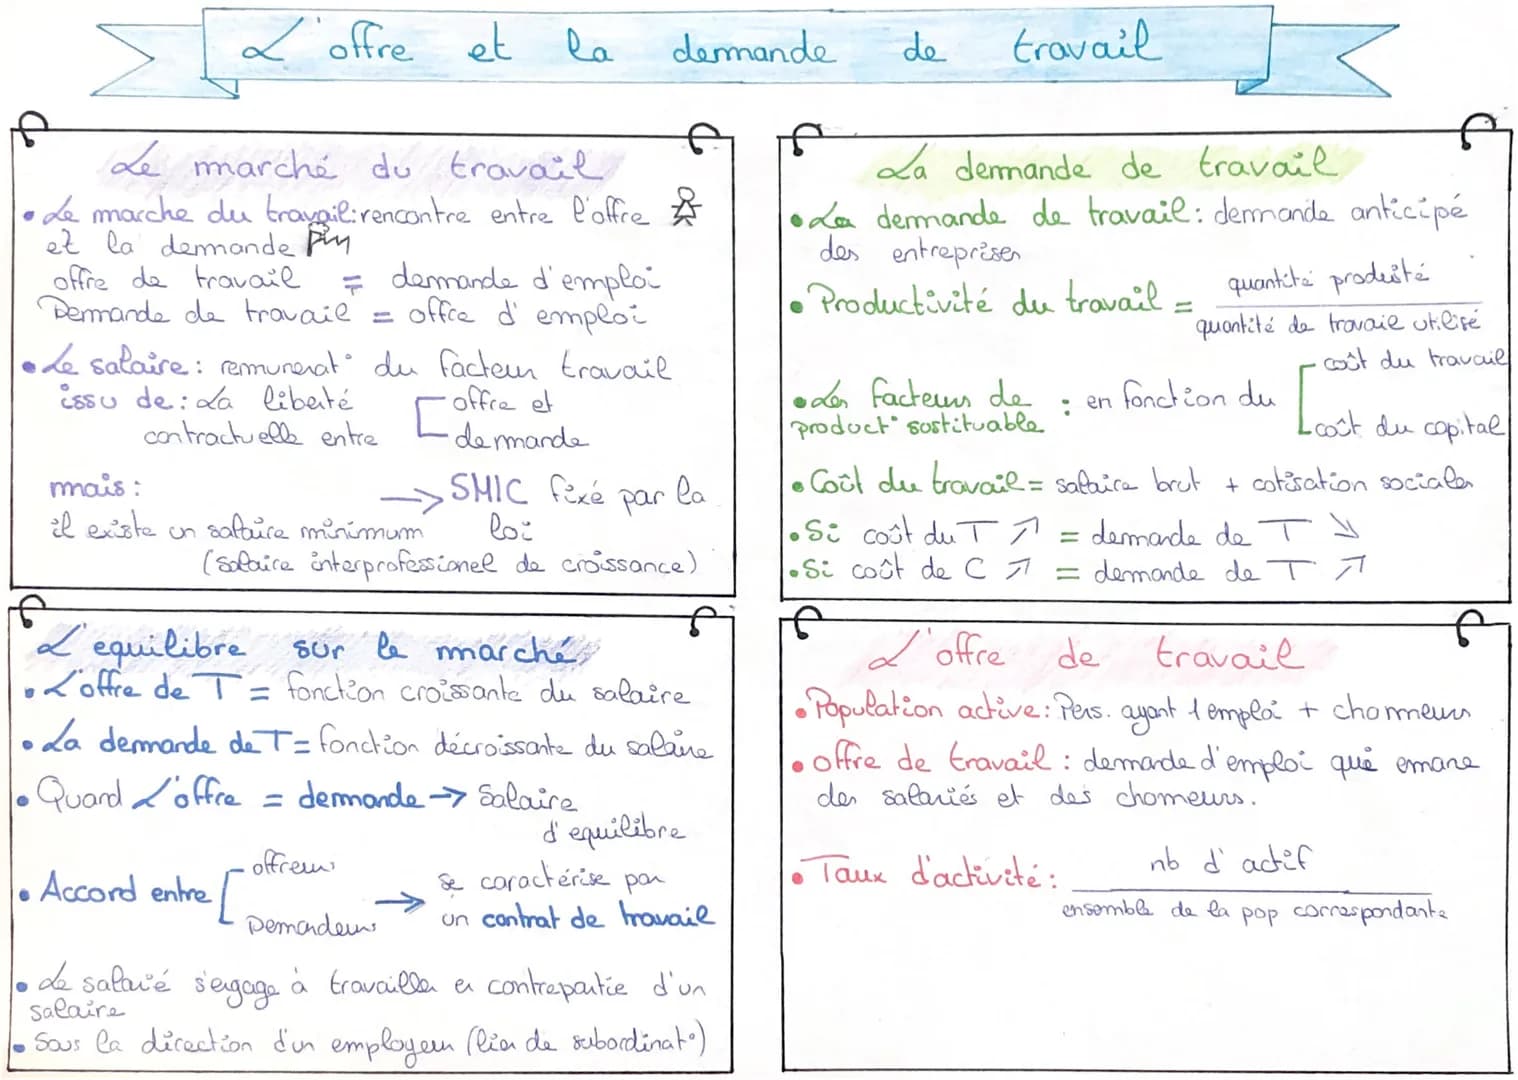 L'offre et la demande de travail
Le marché du travail
• Le marche du travail: rencontre entre l'offre
et la demande
offre de travail = demande d'emploi
Demande de travail = offre d'emploi
• Le salaire : remunerat° du facteur travail
issu de : La liberté
contractuelle entre
offre et
demande
mais :
il existe un salaire minimum
→ SMIC fixé par la
loi
(Salaire interprofessionel de croissance)
La demande de travail
• La demande de travail : demande anticipé
des entreprises
• Productivité du travail =
quantité produité
quantité de travail utilisé
• Les facteurs de
product° sustituable
: en fonction du
coût du travail
coût du capital
• Coût du travail = salaire brut + cotisation sociales
• Si coût du T ↗ = demande de T ↘
• Si coût de C ↗ = demande de T ↗
L'equilibre sur le marché
• L'offre de T = fonction croissante du salaire
• La demande de T = fonction décroissante du salaire
• Quand L'offre = demande → Salaire
d'equilibre
• Accord entre
offreurs
Demandeurs
→ se caractérise par
un contrat de travail
• Le salarié s'engage à travailler en contrepartie d'un
salaire
• Sous la direction d'un employeur (lien de subordinat°)
L'offre de travail
• Population active : Pers. ayant 1 emploi + chomeurs
• offre de travail : demande d'emploi qui emane
des salariés et des chomeurs.
• Taux d'activité :
nb d'actif
ensemble de la pop correspondante